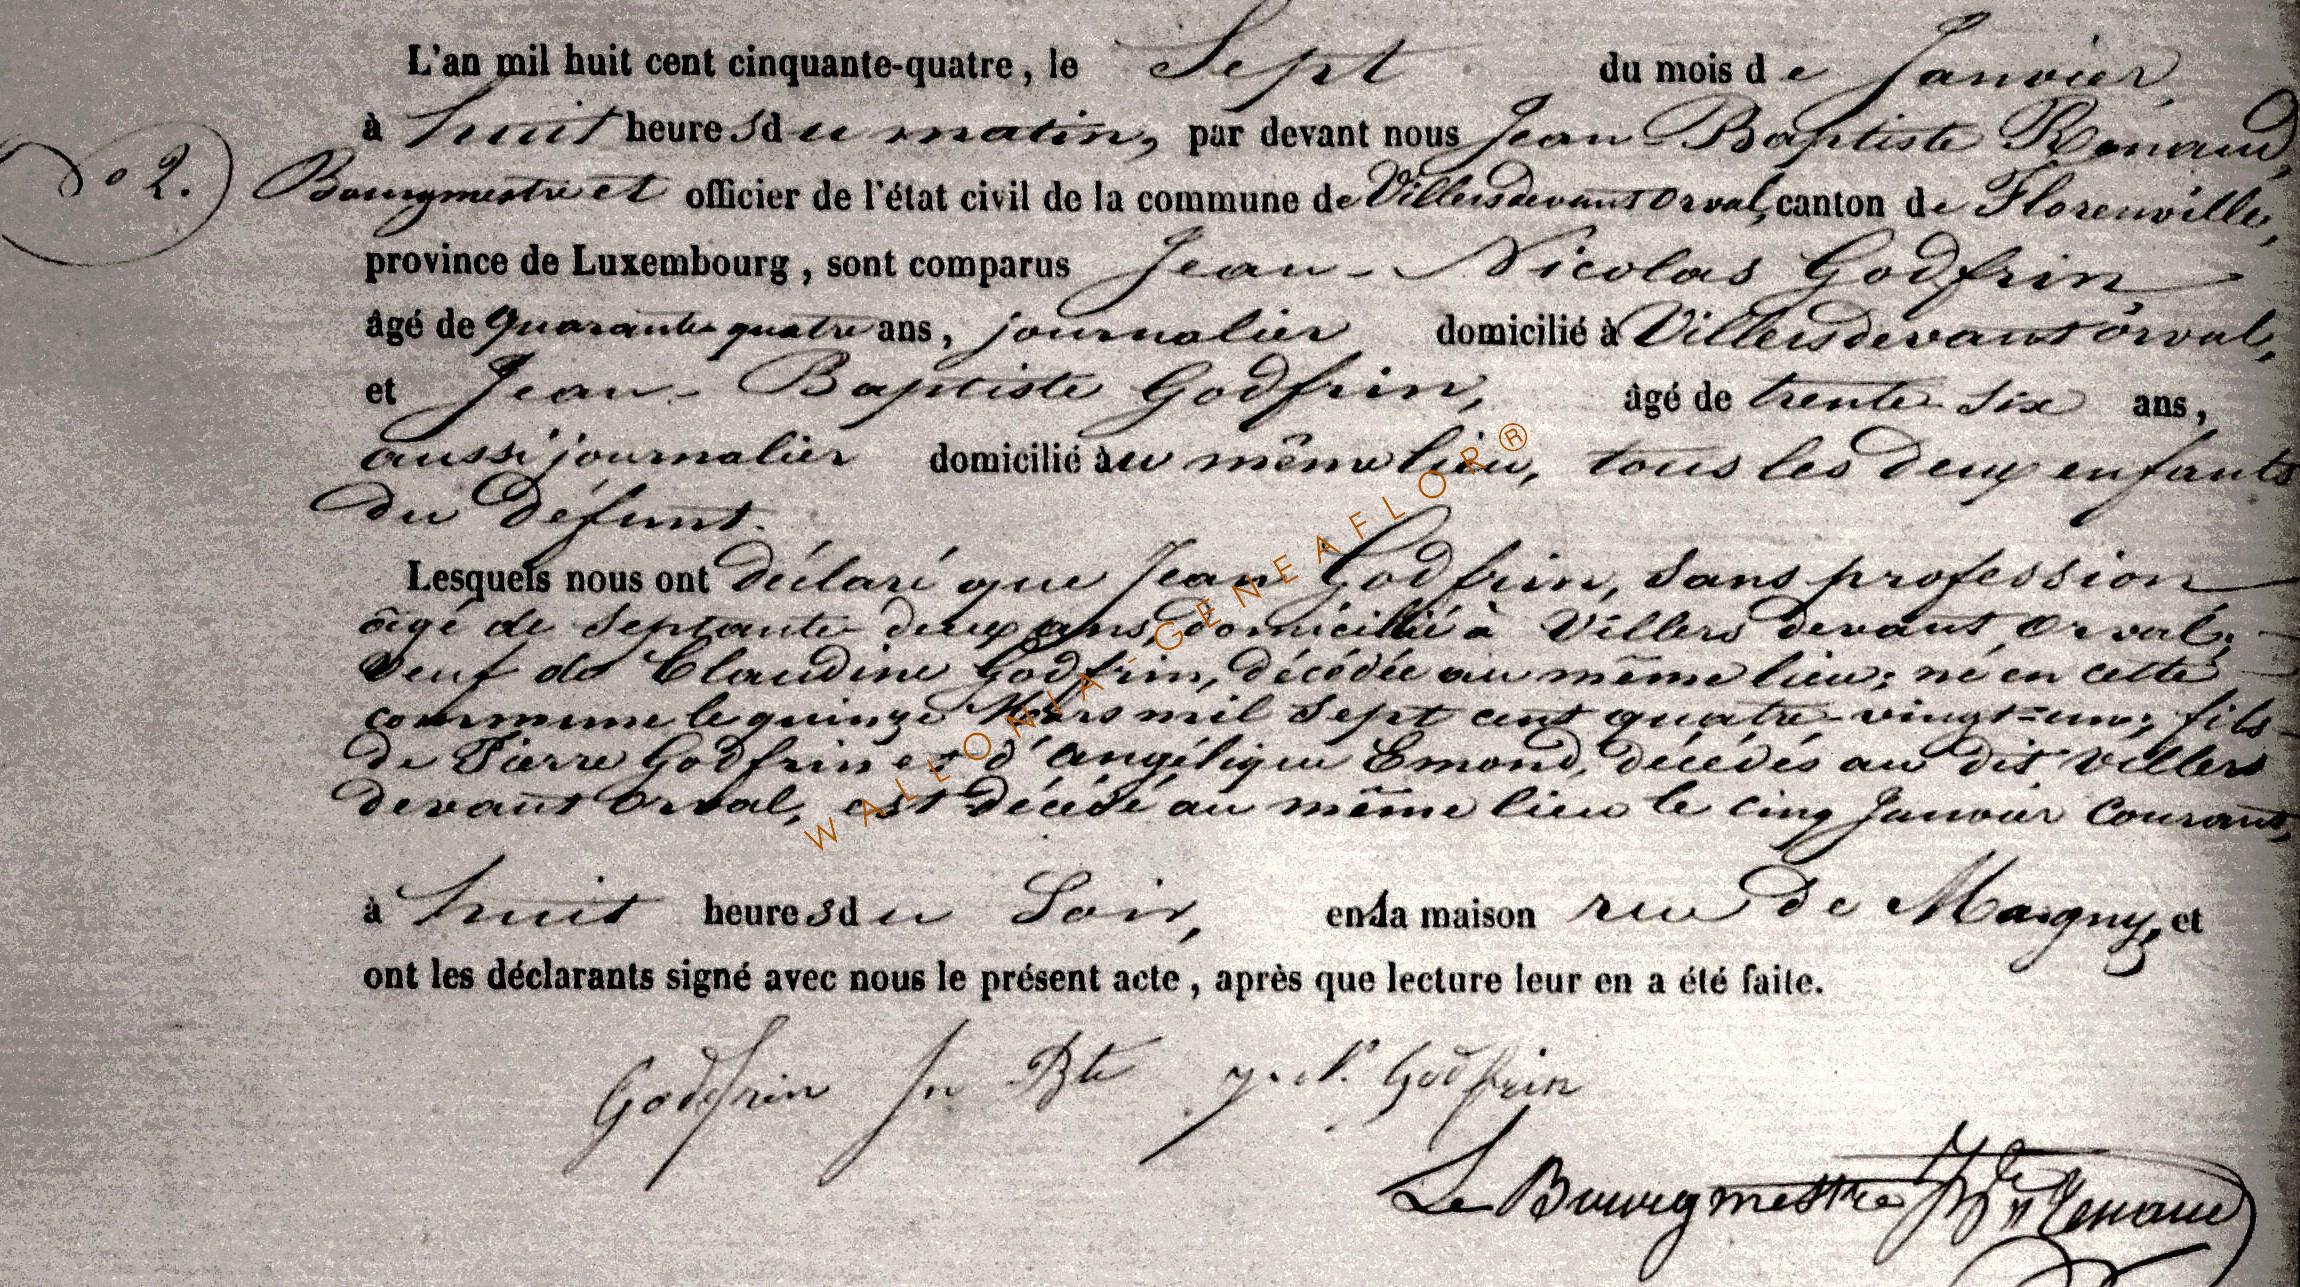 L'an mil huit cent cinquante-quatre, le Sept du mois de Janvier,
à huit heures du matin, par devant nous Jean-Baptiste Renaud,
2.
Bourgmestre et officier de l'état civil de la commune de Villers devant Orval, canton de Florenville,
province de Luxembourg, sont comparus Jean-Nicolas Godfrin,
âgé de quarante quatre ans, journalier domicilié à Villers devant Orval,
et Jean-Baptiste Godfrin, âgé de trente-six ans,
aussi journalier domicilié au même lieu, tous les deux enfants
du défunt.
Lesquels nous ont déclaré que Jean Godfrin, sans profession
âgé de septante-deux ans, domicilié à Villers devant Orval;
veuf de Claudine Godfrin, décédée au même lieu; né en cette
commune le quinze Mars mil sept cent quatre-vingt-un; fils
de Pierre Godfrin et d'angélique Emond, décédés au dit Villers
devant Orval, est décédé au même lieu le cinq Janvier courant,
à huit heures du Soir, en sa maison rue de Margny, et
ont les déclarants signé avec nous le présent acte, après que lecture leur en a été faite.
Godfrin Jn Bte J. N. Godfrin
Le Bourgmestre Renaud
WALLONIA-GENEAFLOR®